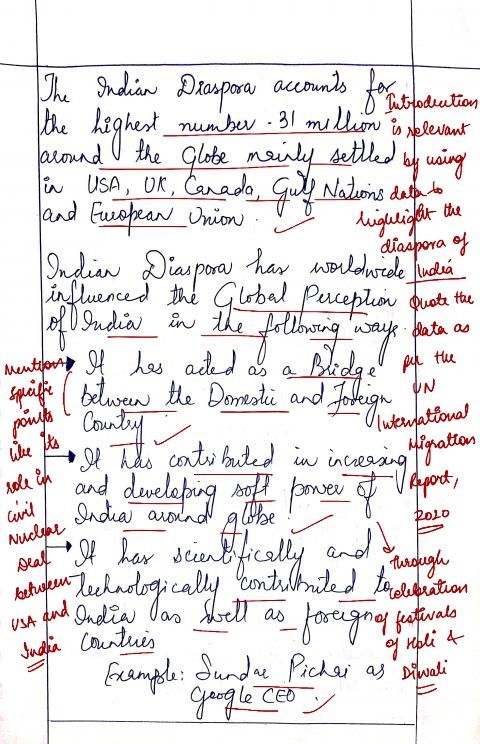 The Indian Diaspora accounts for
the highest number - 31 million
around the Globe mainly settled
in USA, UK, Canada, Gulf Nations
and European Union.
Introduction
is relevant
by using
data to
highlight the
diaspora of
India
Quote the
data as
per the
UN
International
Migration
Report,
2020
Indian Diaspora has worldwide
influenced the Global Perception
of India in the following ways.
It has acted as a Bridge
between the Domestic and Foreign
Country.
Mention
specific
points
like its
role in
civil
Nuclear
Deal
between
USA and
India
It has contributed in increasing
and developing soft power of
India around globe.
through
celebration
of festivals
of Holi &
Diwali
It has scientifically and
technologically contributed to
India as well as foreign
countries
Example: Sundar Pichai as
Google CEO.